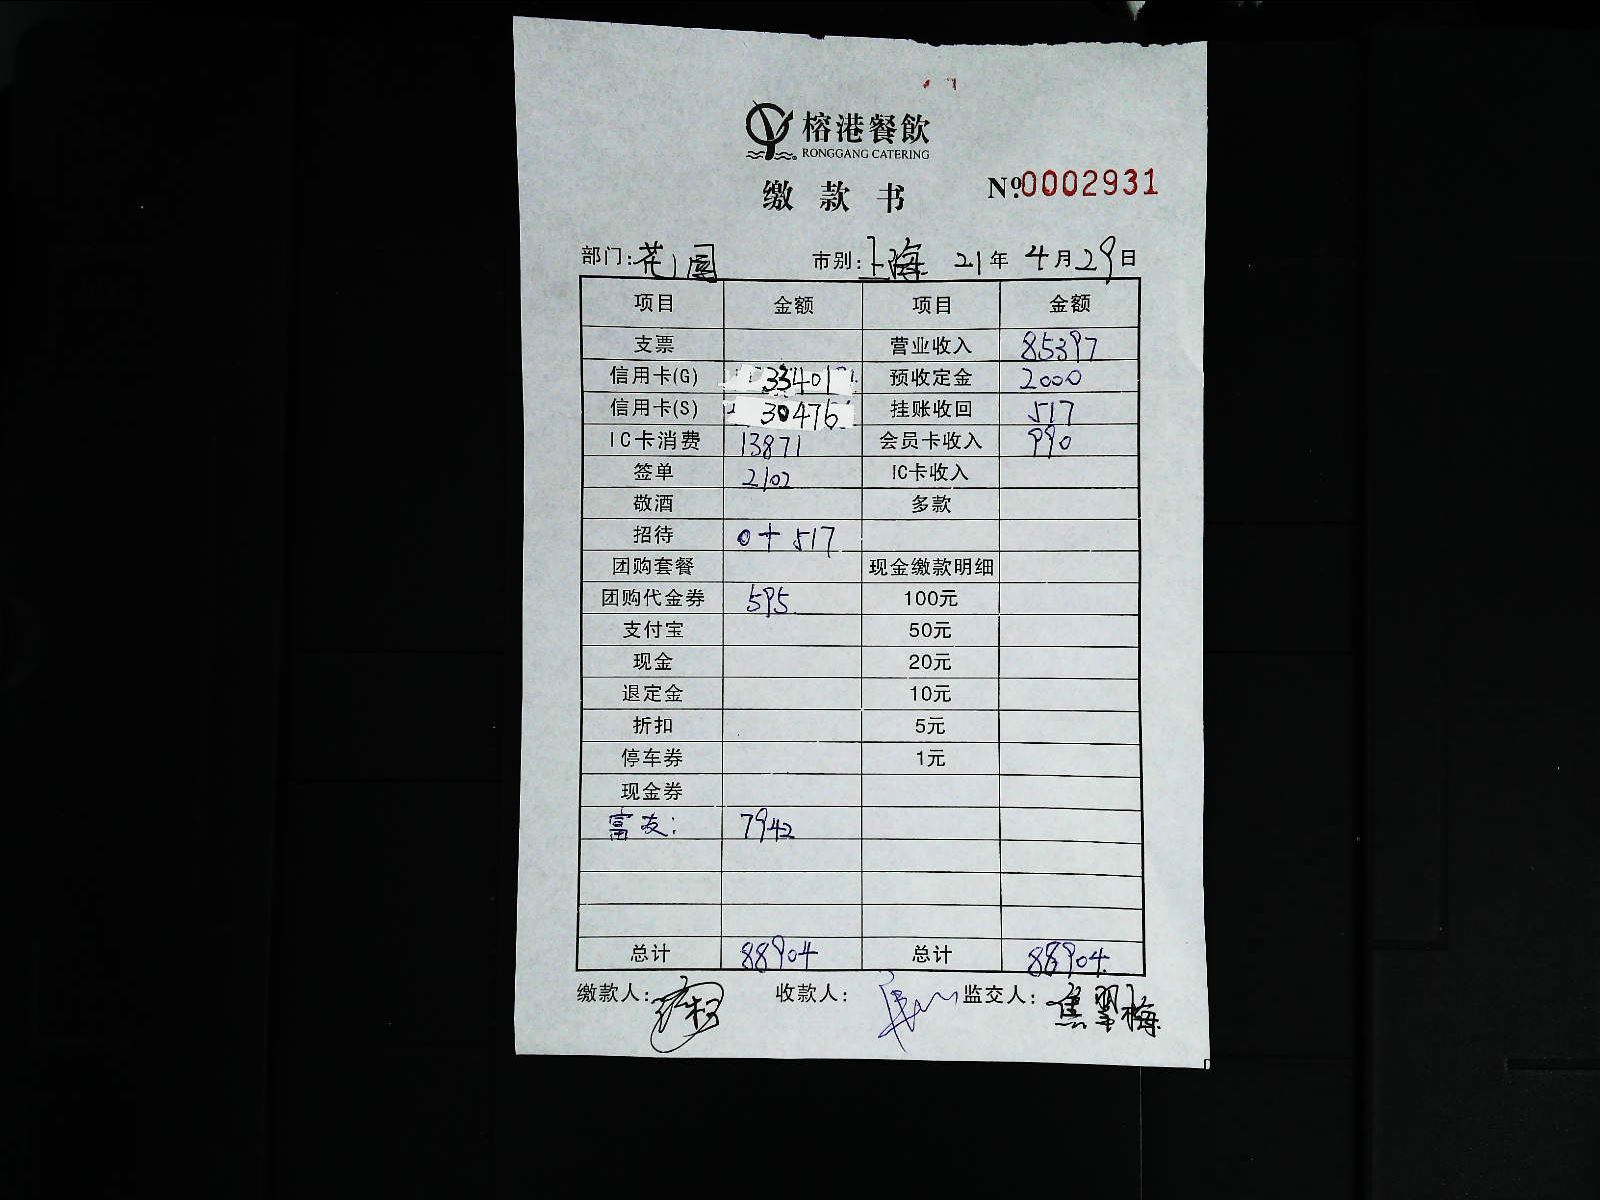 榕港餐飲
RONGGANG CATERING
缴款书 Nº:0002931
部门:花园 市别:上海 21年4月29日
项目 金额 项目 金额
支票 营业收入 85397
信用卡(G) 33401 预收定金 2000
信用卡(S) 30476 挂账收回 517
IC卡消费 13871 会员卡收入 990
签单 2102 IC卡收入
敬酒 多款
招待 0+517
团购套餐 现金缴款明细
团购代金券 595 100元
支付宝 50元
现金 20元
退定金 10元
折扣 5元
停车券 1元
现金券
富友: 7942
总计 88904 总计 88904
缴款人: 收款人: 监交人:焦翠梅